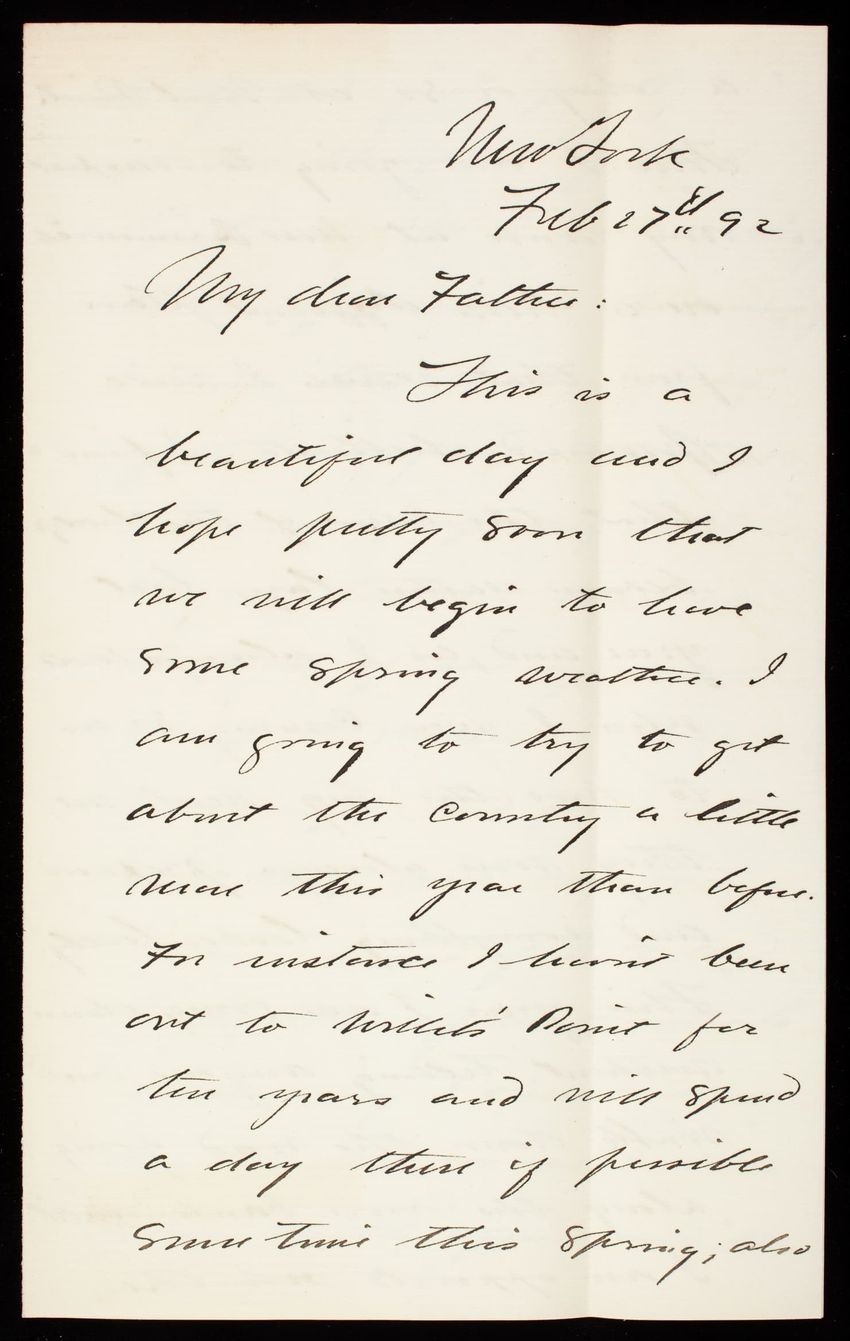 New York
Feb 27th 92
My dear Father:
This is a
beautiful day and I
hope pretty soon that
we will begin to have
some spring weather. I
am going to try to get
about the country a little
more this year than before.
For instance I havn't been
out to Willets' Point for
ten years and will spend
a day there if possible
some time this spring; also